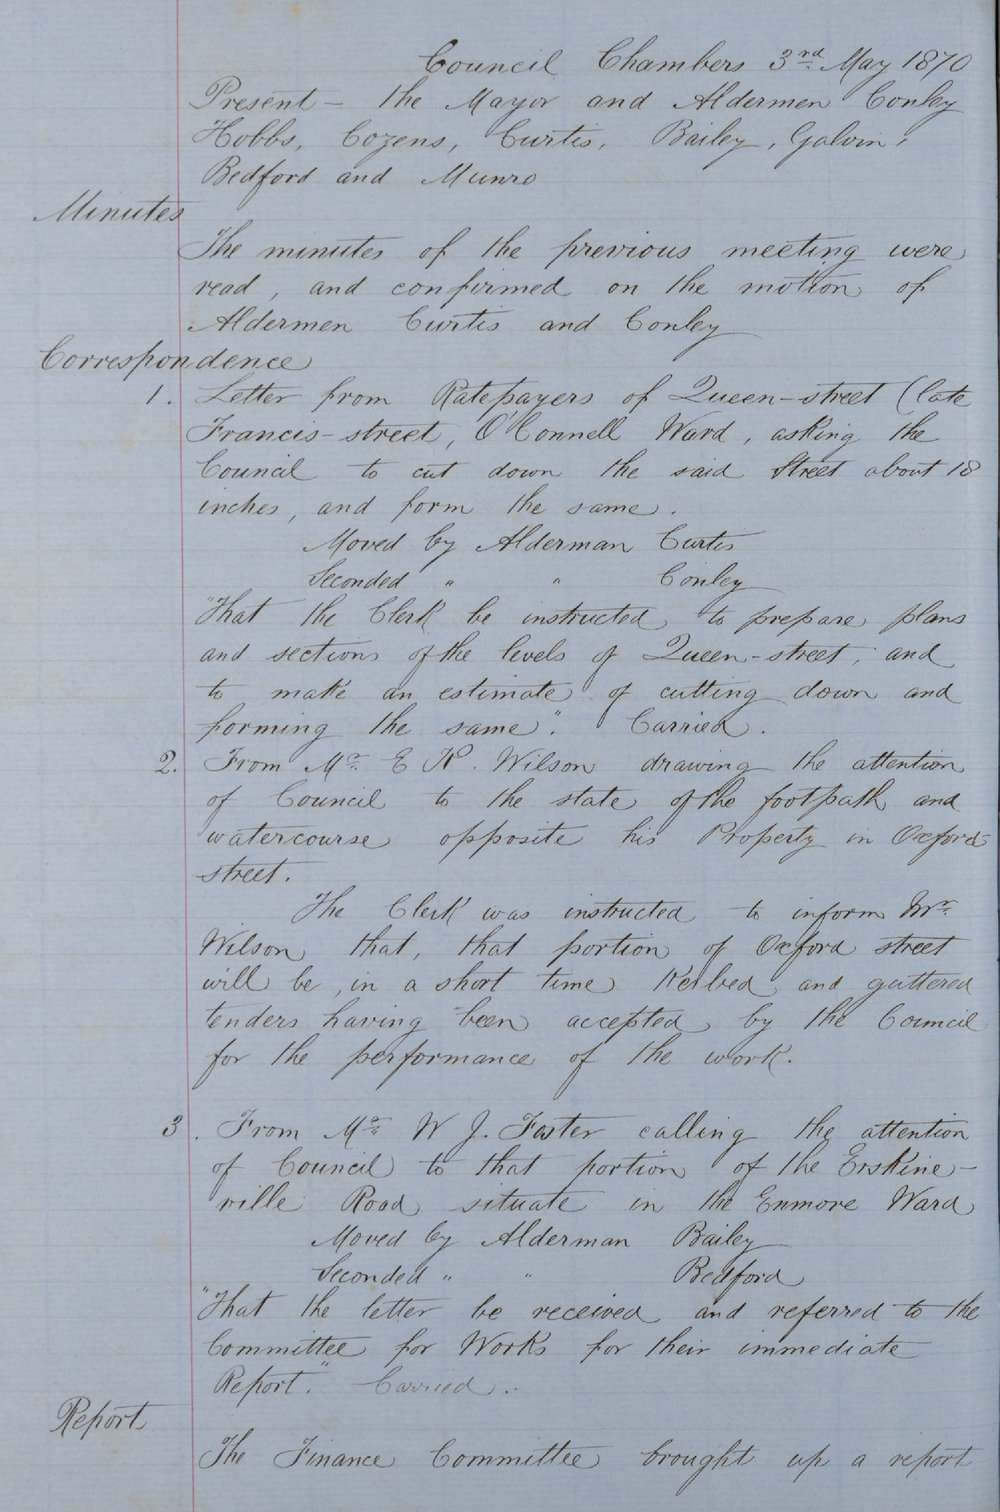 Council Chambers 3rd May 1870
Present - the Mayor and Aldermen Conley
Hobbs, Cozens, Curtis, Bailey, Galvin,
Bedford and Munro
Minutes
The minutes of the previous meeting were
read, and confirmed on the motion of
Aldermen Curtis and Conley
Correspondence
1. Letter from Ratepayers of Queen-street (late
Francis-street, O'Connell Ward, asking the
Council to cut down the said Street about 18
inches, and form the same.
Moved by Alderman Curtis
Seconded " " Conley
"That the Clerk be instructed to prepare plans
and sections of the levels of Queen-street, and
to make an estimate of cutting down and
forming the same". Carried.
2. From Mr. E K. Wilson drawing the attention
of Council to the state of the footpath and
watercourse opposite his Property in Oxford-
street.
The Clerk was instructed to inform Mr.
Wilson that, that portion of Oxford street
will be, in a short time Kerbed and guttered
tenders having been accepted by the Council
for the performance of the work.
3. From Mr. W J. Foster calling the attention
of Council to that portion of the Erskine-
ville Road situate in the Enmore Ward
Moved by Alderman Bailey
Seconded " " Bedford
"That the letter be received and referred to the
Committee for Works for their immediate
Report." Carried.
Report
The Finance Committee brought up a report